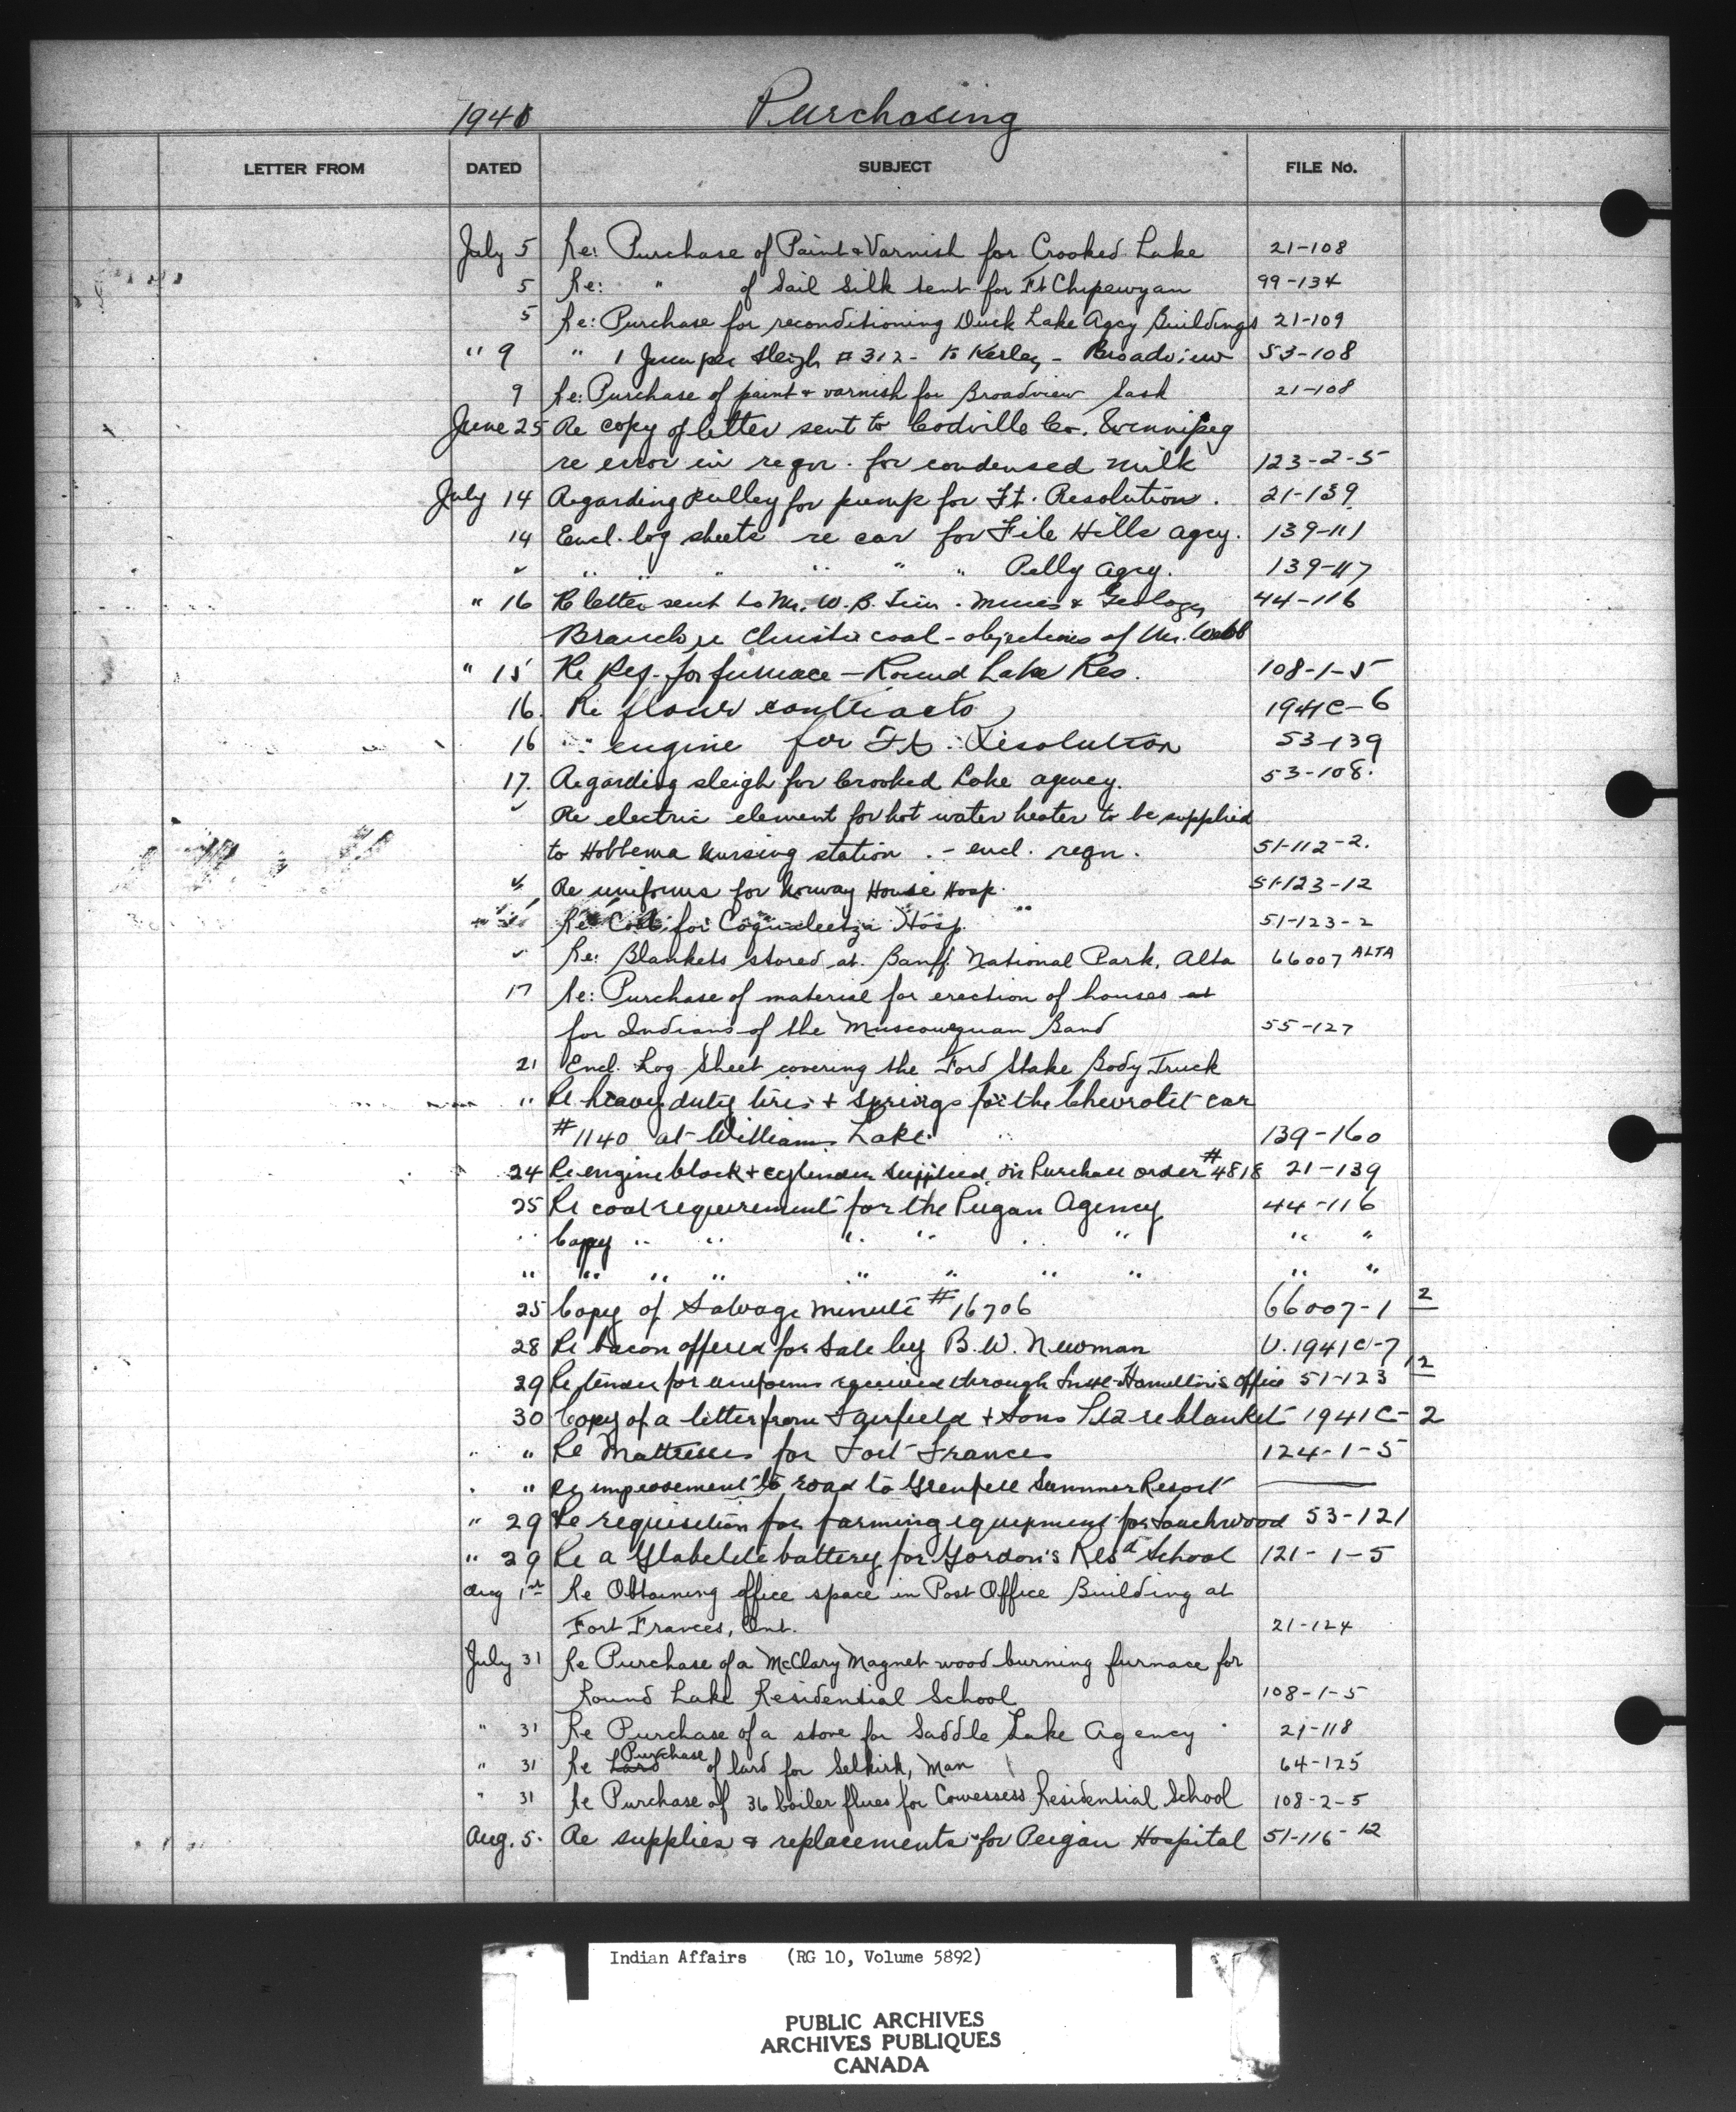 1941 Purchasing
LETTER FROM DATED SUBJECT FILE No.
July 5 Re: Purchase of Paint & Varnish for Crooked Lake 21-108
5 Re: " of Sail Silk tent for Ft Chipewyan 99-134
5 Re: Purchase for reconditioning Duck Lake Agcy Buildings 21-109
" 9 " 1 Jumper sleigh # 312 - to Kerley - Broadview 53-108
9 Re: Purchase of paint & varnish for Broadview Sask 21-108
June 25 Re copy of letter sent to Codville Co. Winnipeg
re error in reqn. for condensed milk 123-2-5
July 14 Regarding pulley for pump for Ft. Resolution. 21-139
14 Encl. log sheets re car for File Hills agcy. 139-111
" " " " " " Pelly agcy. 139-117
" 16 Re letter sent to Mr. W. B. Timm. Mines & Geology 44-116
Branch re coal - objections of Mr. Webb
" 15 Re Req. for furnace - Round Lake Res. 108-1-5
16. Re flour contracts 1941C-6
16 " engine for Ft. Resolution 53-139
17. Regarding sleigh for Crooked Lake agency. 53-108.
" Re electric element for hot water heater to be supplied
to Hobbema Nursing station. - encl. reqn. 51-112-2.
" Re uniforms for Norway House Hosp. 51-123-12
Re Coal for Coqualeetza Hosp. " 51-123-2
" Re: Blankets stored at Banff National Park, Alta 66007 ALTA
17 Re: Purchase of material for erection of houses at
for Indians of the Muscowequan Band 55-127
21 Encl. Log Sheet covering the Ford Stake Body Truck
" Re heavy duty tires & springs for the Chevrolet car
#1140 at Williams Lake. 139-160
24 Re engine block & cylinder supplied on Purchase order #4818 21-139
25 Re coal requirement for the Peigan Agency 44-116
" Copy " " " " " " " "
" " " " " " " " " "
25 Copy of Salvage minute #16706 66007-1 2
28 Re bacon offered for sale by B. W. Newman U.1941C-7
29 Re tender for uniforms received through Hamilton's office 51-123 12
30 Copy of a letter from Fairfield & Sons Ltd re blanket 1941C-2
" " Re Mattresses for Fort Frances 124-1-5
" " Re improvement to road to Grenfell Summer Resort
" 29 Re requisition for farming equipment for Touchwood 53-121
" 29 Re a Glabelite battery for Gordon's Resd School 121-1-5
Aug 1st Re Obtaining office space in Post Office Building at
Fort Frances, Ont. 21-124
July 31 Re Purchase of a McClary Magnet wood burning furnace for
Round Lake Residential School 108-1-5
" 31 Re Purchase of a stove for Saddle Lake Agency 21-118
" 31 Re Lard Purchase of lard for Selkirk, Man 64-125
" 31 Re Purchase of 36 boiler flues for Cowessess Residential School 108-2-5
Aug. 5. Re supplies & replacements for Peigan Hospital 51-116-12
Indian Affairs (RG 10, Volume 5892)
PUBLIC ARCHIVES
ARCHIVES PUBLIQUES
CANADA